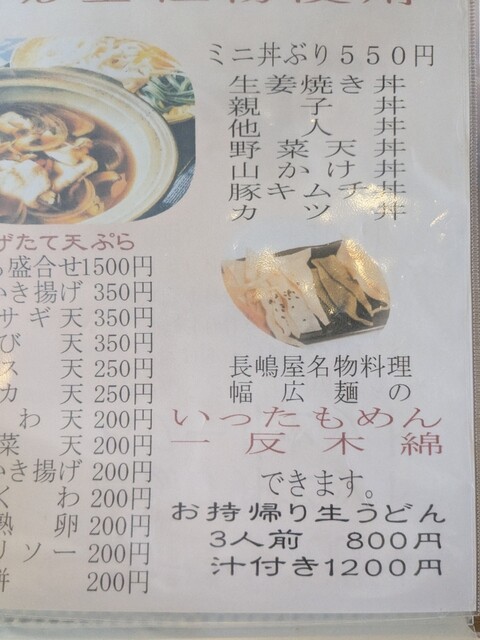 ミニ丼ぶり550円
生姜焼き丼
親子丼
他人丼
野菜天丼
山かけ丼
豚キムチ丼
カツ丼
げたて天ぷら
盛合せ1500円
いき揚げ 350円
サギ天 350円
び天 350円
ス天 250円
カ天 250円
わ天 200円
菜天 200円
いき揚げ 200円
くわ 200円
熟卵 200円
リソー 200円
餅 200円
長嶋屋名物料理
幅広麺の
いったもめん
一反木綿
できます。
お持帰り生うどん
3人前 800円
汁付き1200円